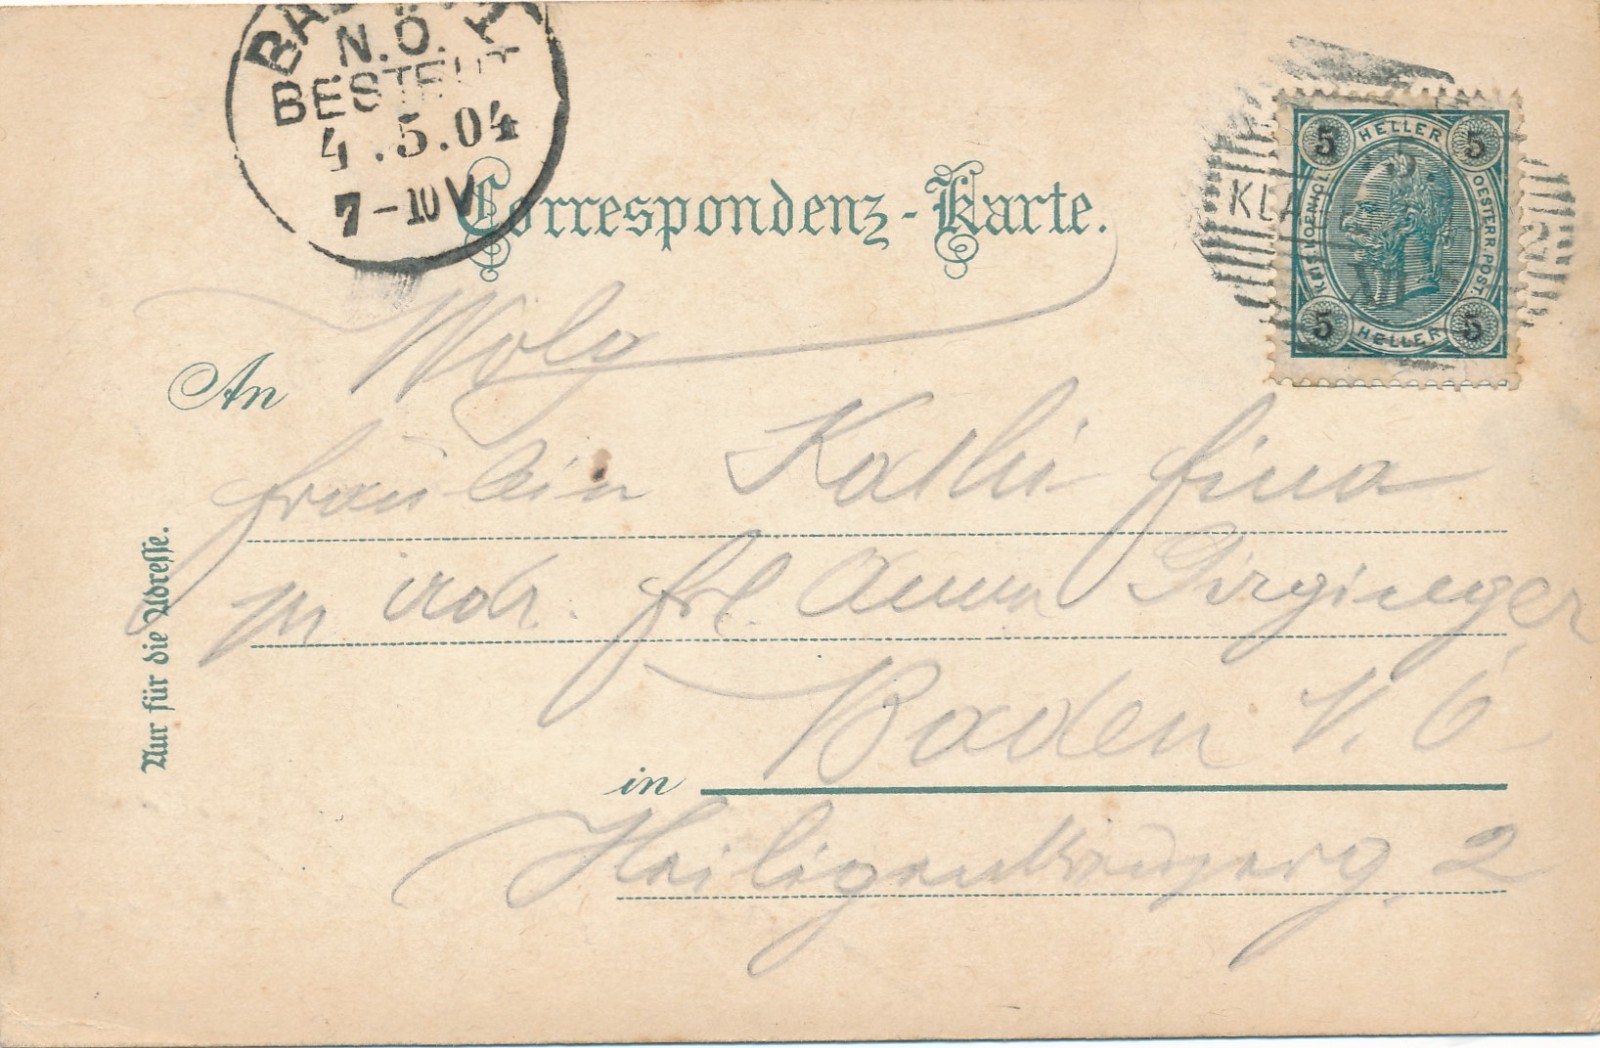 BAD
N.Ö.
BESTELLT
4.5.04
7-10V
Correspondenz-Karte.
5 HELLER 5
KAIS. KOENIGL.
OESTERR. POST.
5 HELLER 5
KLA
An
Fräulein Kathi
adr. Frl. Anna
Baden N. Ö
in
Heiligenkreuzerg. 2
Nur für die Adresse.